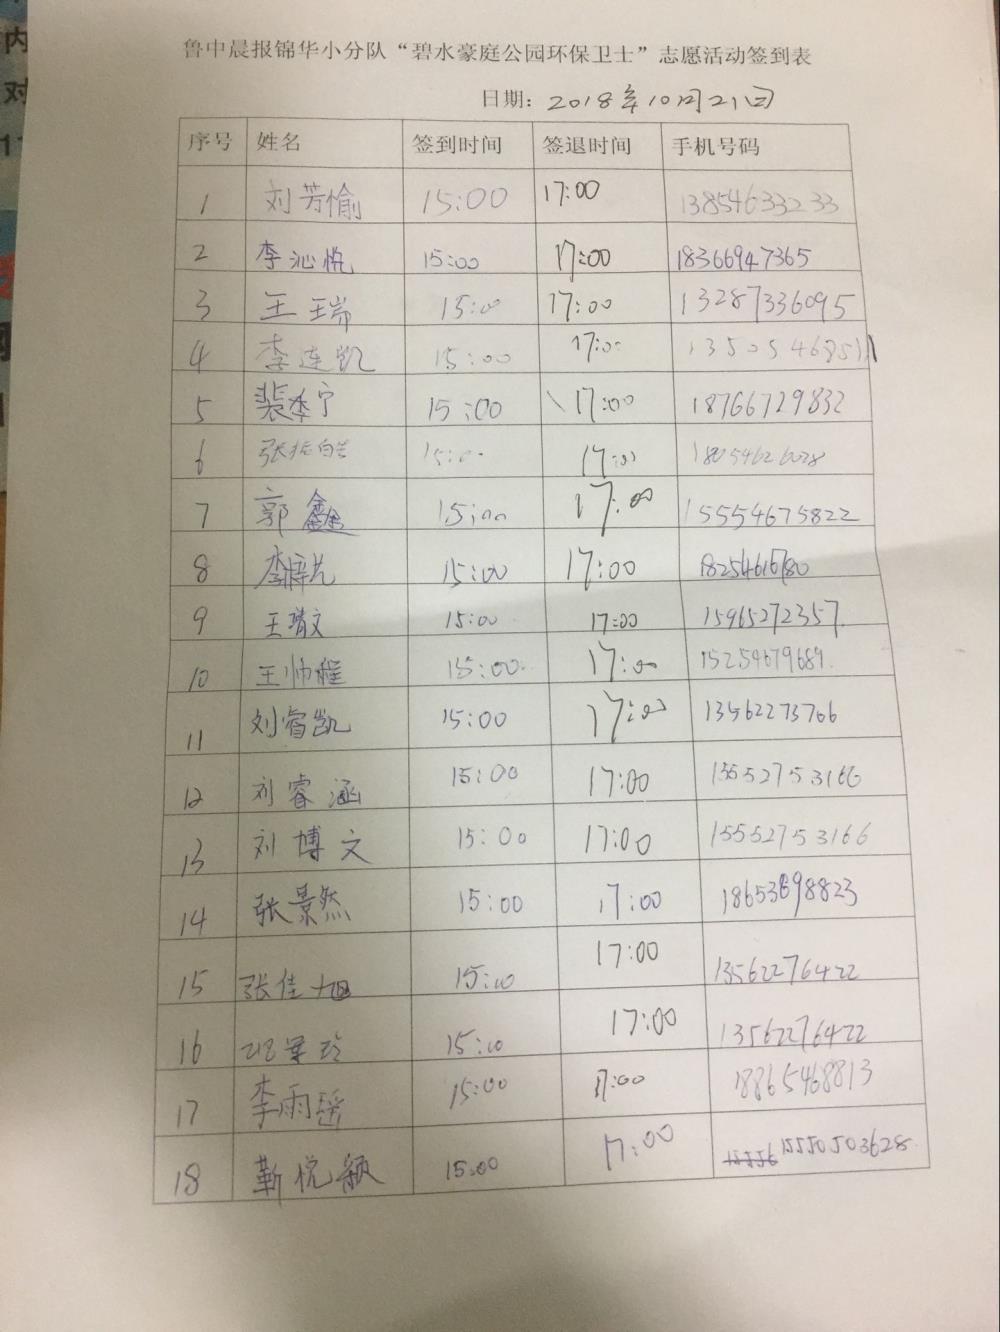 内
对
鲁中晨报锦华小分队“碧水豪庭公园环保卫士”志愿活动签到表
日期：2018年10月21日
序号 姓名 签到时间 签退时间 手机号码
1 刘芳愉 15:00 17:00 13854633233
2 李沁悦 15:00 17:00 18366947365
3 王瑞 15:00 17:00 13287336095
4 李连凯 15:00 17:00
5 裴本宁 15:00 17:00 18766729832
6 15:00 17:00 18054626028
7 郭鑫 15:00 17:00 15554675822
8 15:00 17:00
9 王瑞文 15:00 17:00 15965272357
10 王帅程 15:00 17:00 15254679689
11 刘睿凯 15:00 17:00 13562273766
12 刘睿涵 15:00 17:00 15552753166
13 刘博文 15:00 17:00 15552753166
14 张景然 15:00 17:00 18653698823
15 张佳旭 15:00 17:00 13562276422
16 15:00 17:00 13562276422
17 李雨瑶 15:00 17:00 18865468813
18 靳悦颖 15:00 17:00 15550503628